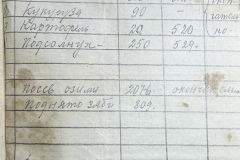 Кукуруза 90 -
Картофель 20 520 по-
Подсолнух- 250 529-
посев озими 207га окончен
Поднято зяби 809.